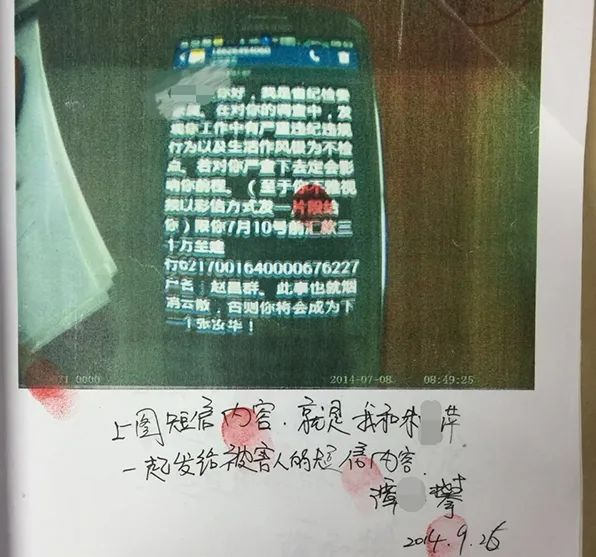 你好,我是省纪检委
。在对你的调查中,发
现你工作中有严重违纪违规
行为以及生活作风极为不检
点。若对你严重下去定会影
响你前程。(至于你不雅视
频以彩信方式发一片段给
你)限你7月10号前汇款三
十万至建
行6217001640000676227
户名:赵昌群。此事也就烟
消云散,否则你将会成为下
一个张汝华!
0000 2014-07-08 08:49:25
上图短信内容.就是我和朱 萍
一起发给被害人的短信内容.
谭 攀
2014.9.26